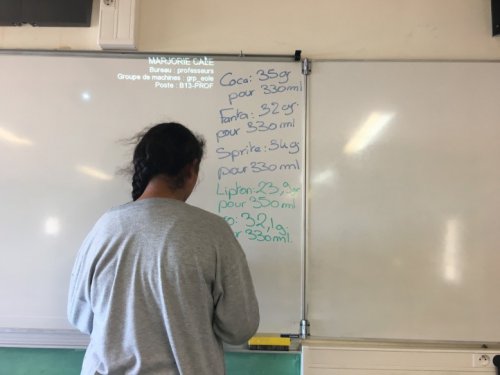 MARJORIE CALE
Bureau : professeurs
Groupe de machines : grp_eole
Poste : B13-PROF
Coca: 35gr
pour 330ml
Fanta: 32 gr
pour 330ml
Sprite: 34g
pour 330ml
Lipton: 23,9gr
pour 350ml
32,1g
330ml